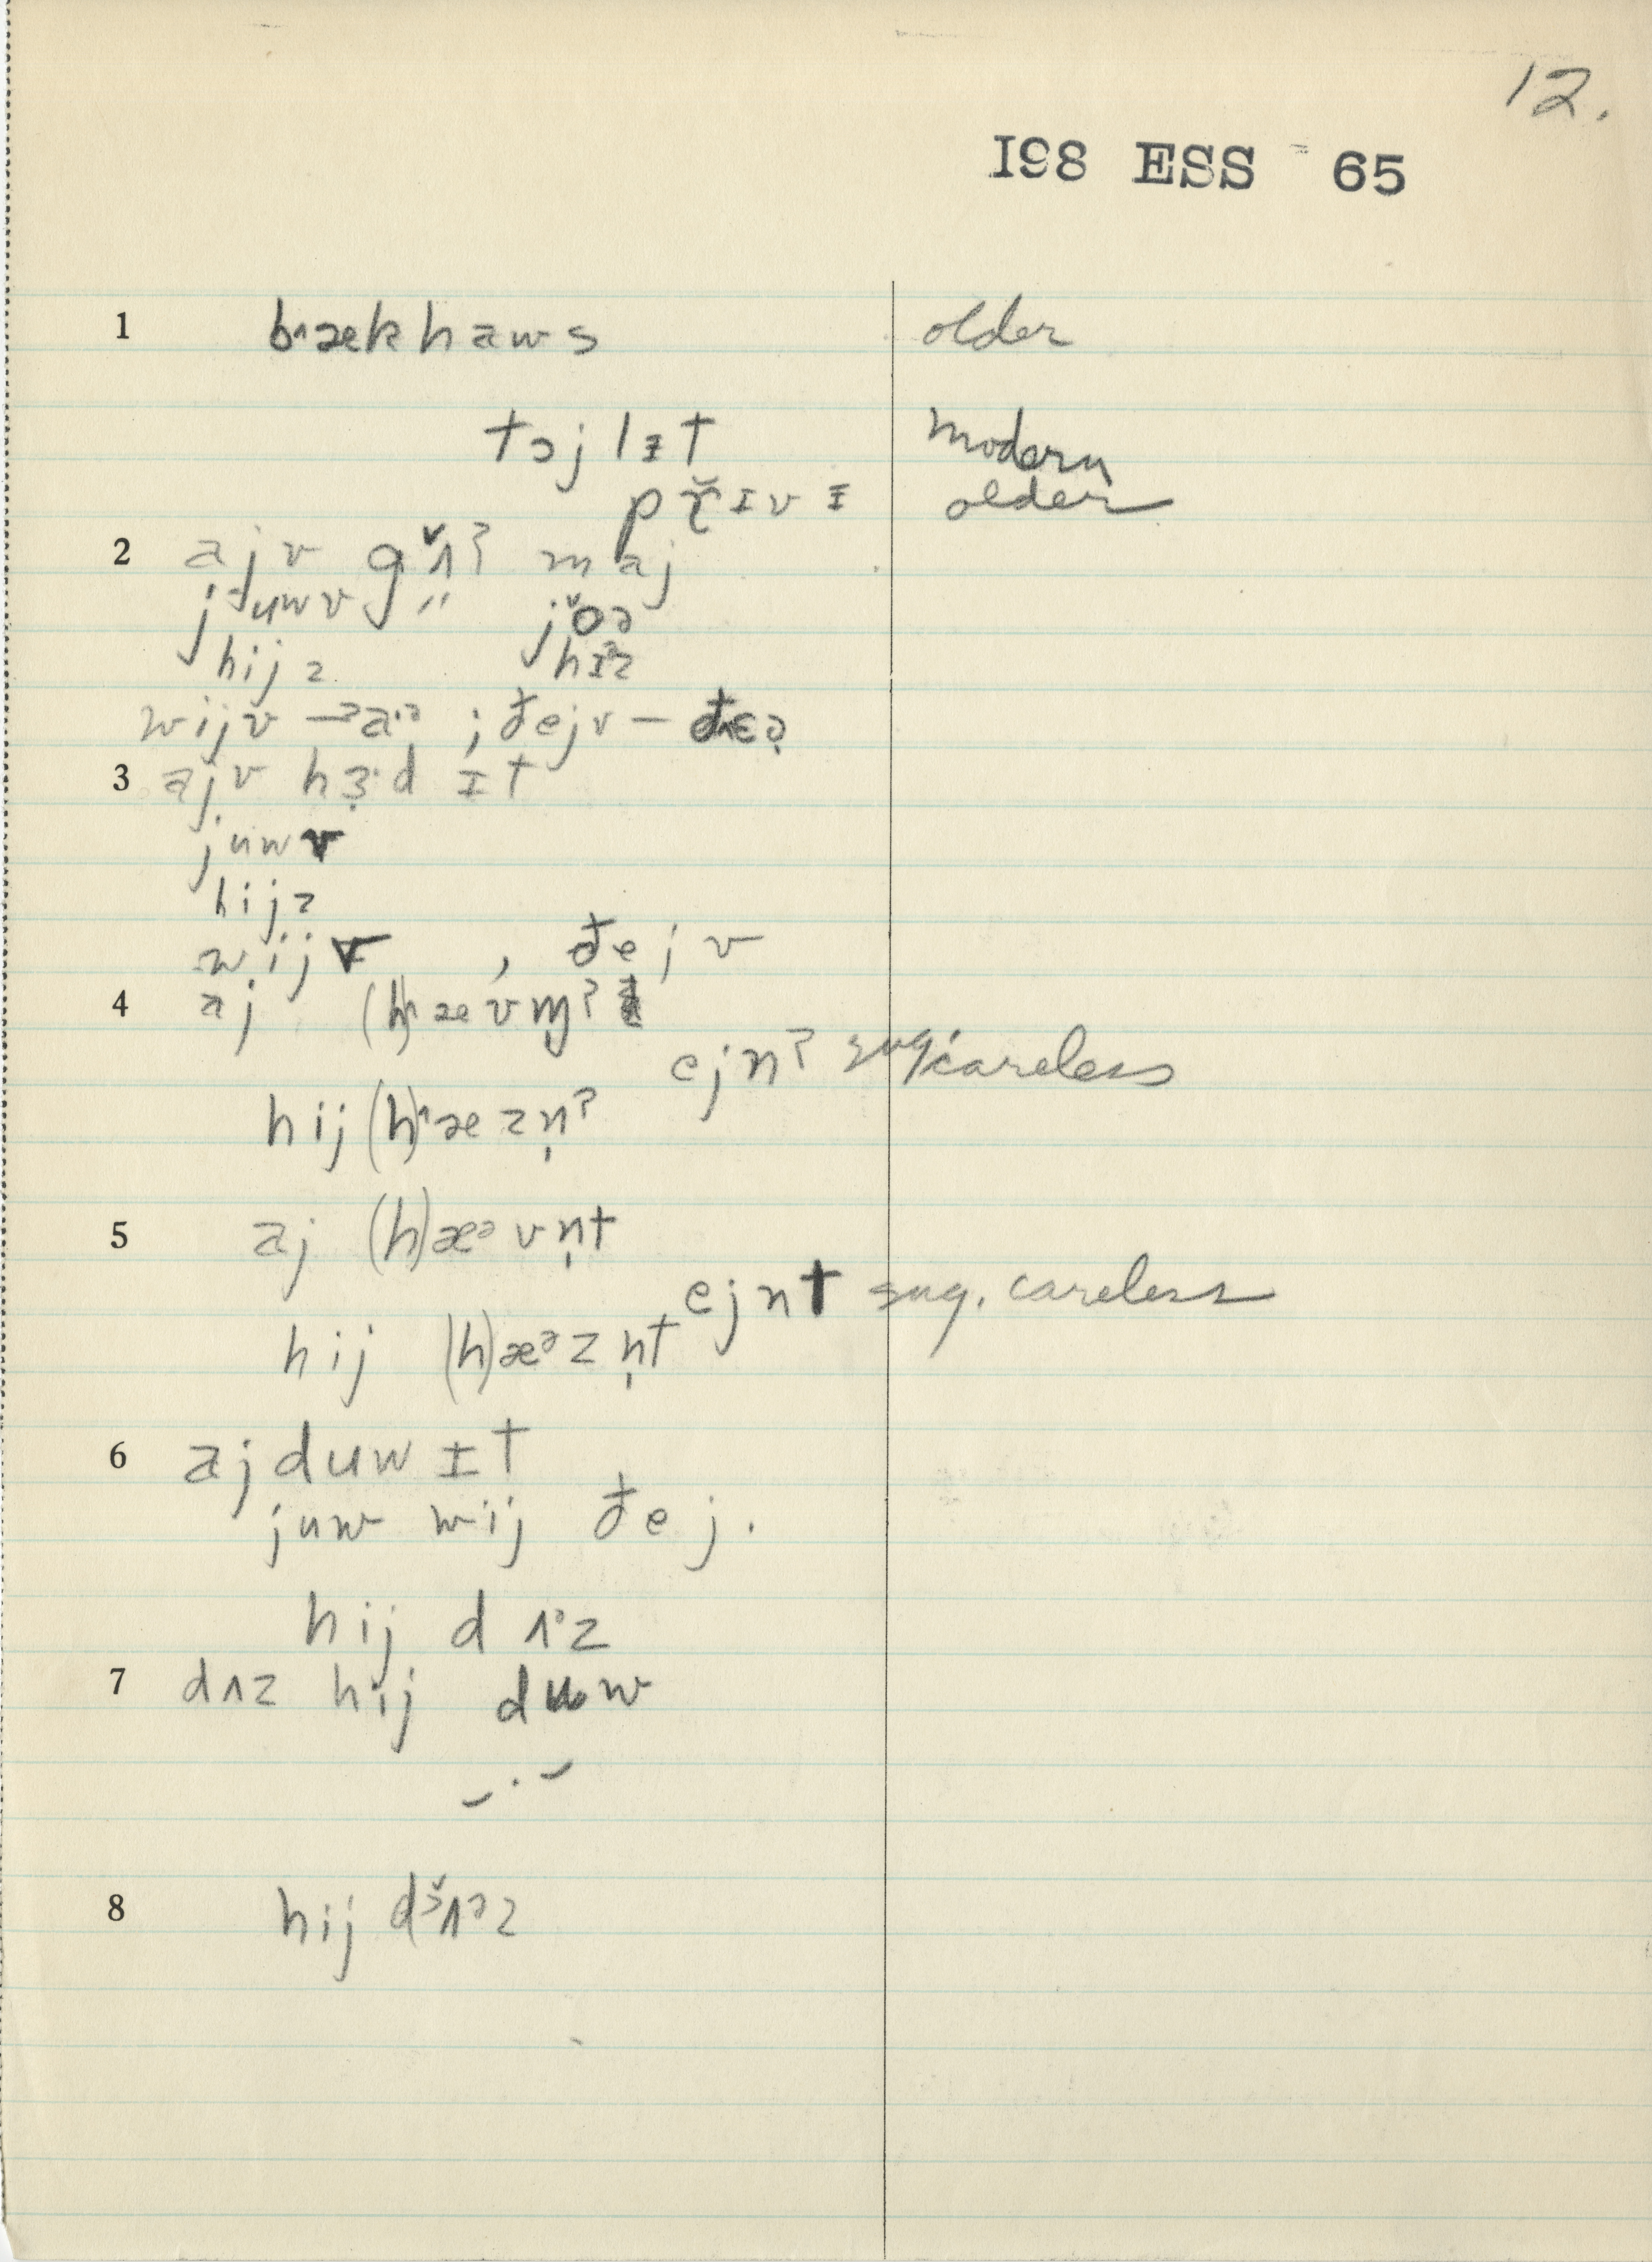 12.
I98 ESS 65
1 bʌækhaws older
tɔjlɪt modern
pɤ̆ɪvɪ older
2 ajv gɤ̆ʌʔ maj
juwv " jŏə
hijz hɪz
wijv — aᵊ ; đejv — đɛə
3 ajv hɜ̣·d ɪt
juwv
hijz
wijv , đejv
4 aj (h)ævm̩ʔ
ejnʔ sug. careless
hij (h)æzn̩ʔ
5 aj (h)æᵊvn̩t
ejnt sug. careless
hij (h)æᵊzn̩t
6 aj duw ɪt
juw wij đej.
hij dʌᵊz
7 dʌz hij duw
8 hij dʌᵊz